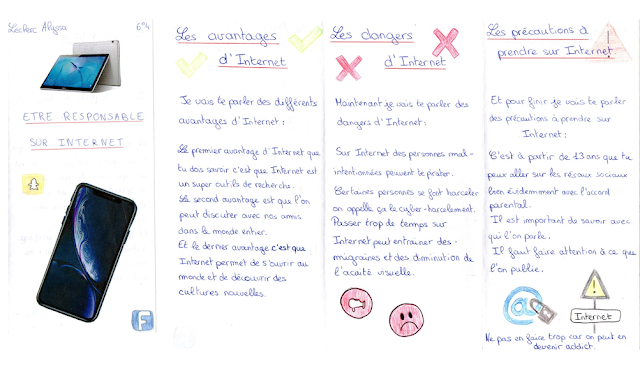 Leclerc Alyssa 6°4
ETRE RESPONSABLE
SUR INTERNET
Les avantages
d'Internet
Je vais te parler des différents
avantages d'Internet :
Le premier avantage d'Internet que
tu dois savoir c'est que Internet est
un super outils de recherche.
Le second avantage est que l'on
peut discuter avec nos amis
dans le monde entier.
Et le dernier avantage c'est que
Internet permet de s'ouvrir au
monde et de découvrir des
cultures nouvelles.
Les dangers
d'Internet
Maintenant je vais te parler des
dangers d'Internet :
Sur Internet des personnes mal-
intentionnées peuvent te pirater.
Certaines personnes se font harceler
on appelle ça le cyber-harcelement.
Passer trop de temps sur
Internet peut entrainer des
migraines et des diminution de
l'acaité visuelle.
Les précautions à
prendre sur Internet
Et pour finir je vais te parler
des précautions à prendre sur
Internet :
C'est à partir de 13 ans que tu
peux aller sur les réseaux sociaux
bien évidemment avec l'accord
parental.
Il est important de savoir avec
qui l'on parle.
Il faut faire attention à ce que
l'on publie.
@
!
Internet
Ne pas en faire trop car on peut en
devenir addict.